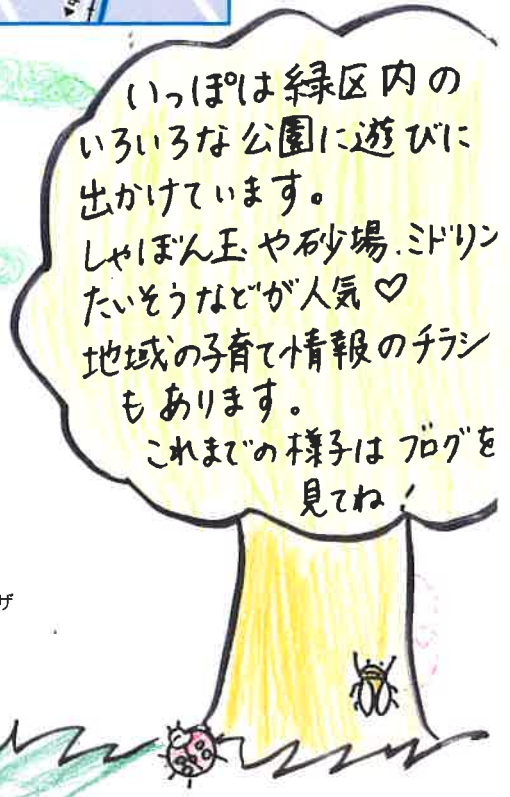 いっぽは緑区内の
いろいろな公園に遊びに
出かけています。
しゃぼん玉や砂場、ミドリン
たいそうなどが人気♡
地域の子育て情報のチラシ
もあります。
これまでの様子はブログを
見てね!
ザ